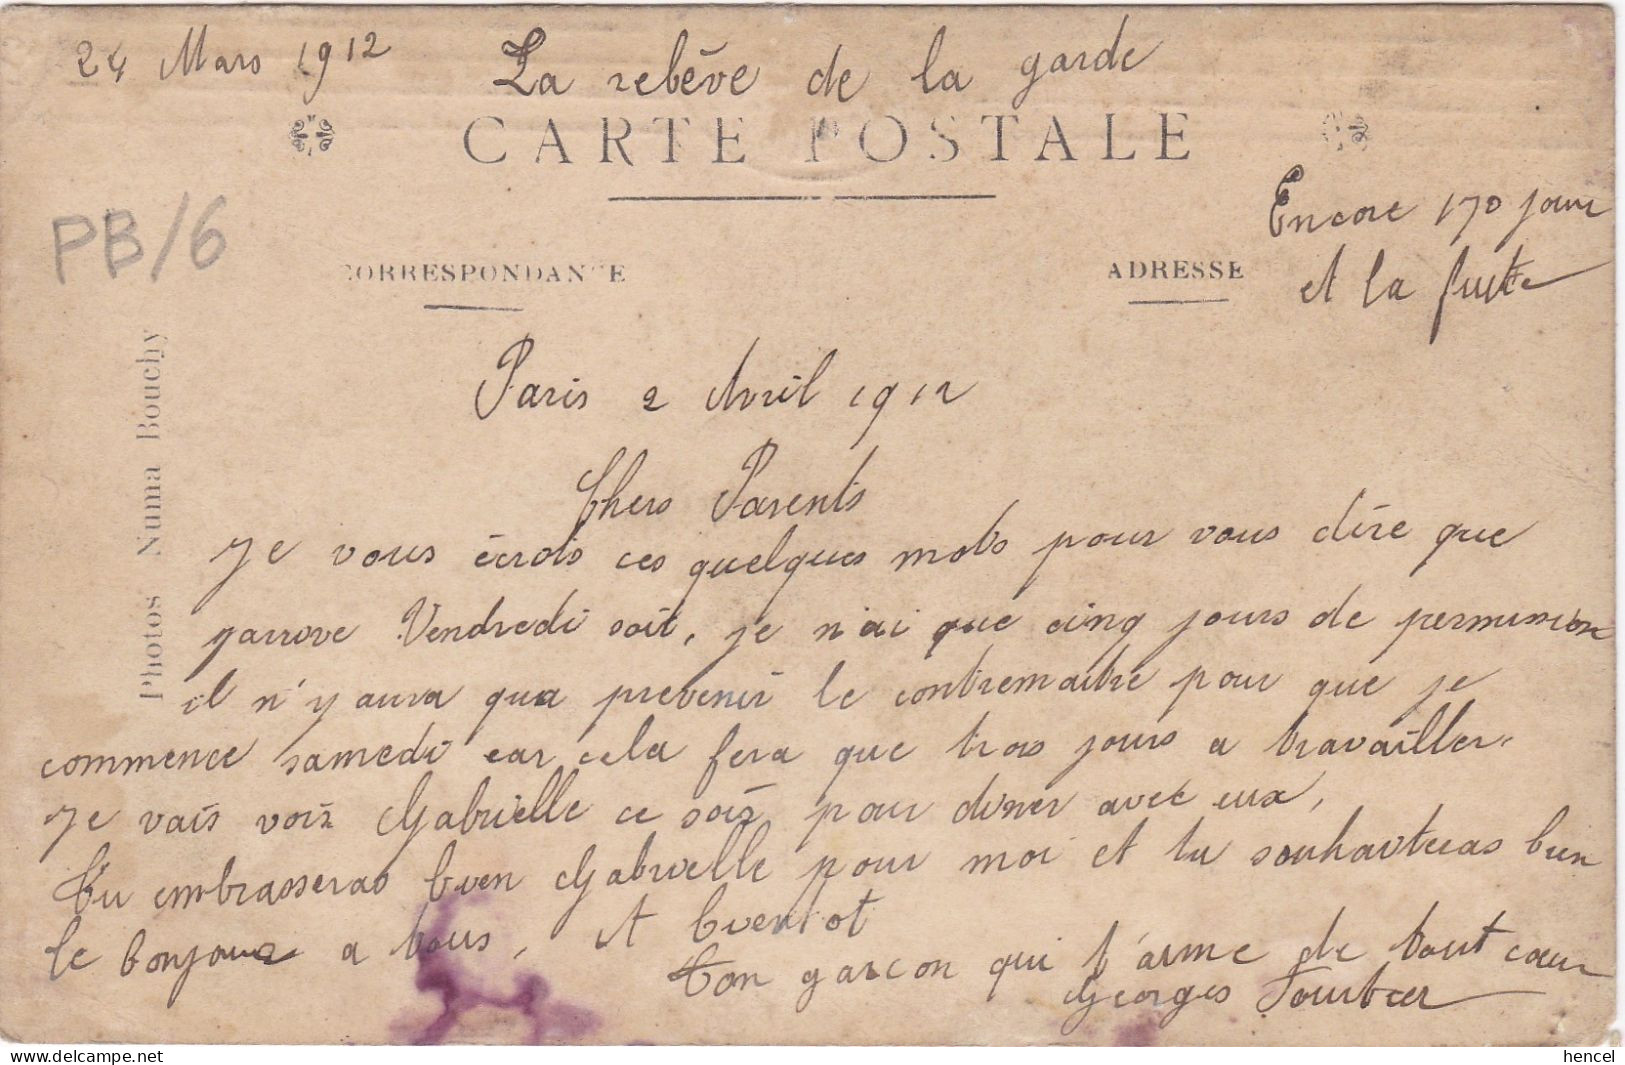 24 Mars 1912 La relève de la garde
CARTE POSTALE
Encore 170 jours
et la fuite
PB/6
CORRESPONDANCE
ADRESSE
Photos Numa Bouchy
Paris 2 Avril 1912
Chers Parents
Je vous écrois ces quelques mots pour vous dire que
jarrove Vendredi soir, je n'ai que cinq jours de permission
il n'y aura qua prevenir le contremaitre pour que je
commence samedi car cela fera que trois jours a travailler.
Je vais voir Gabrielle ce soir pour diner avec eux,
Tu embrasseras bien Gabrielle pour moi et tu souhaiteras bien
le bonjour a tous, A bientot
Ton garcon qui t'aime de tout cœur
Georges
hencel
https://www.delcampe.net